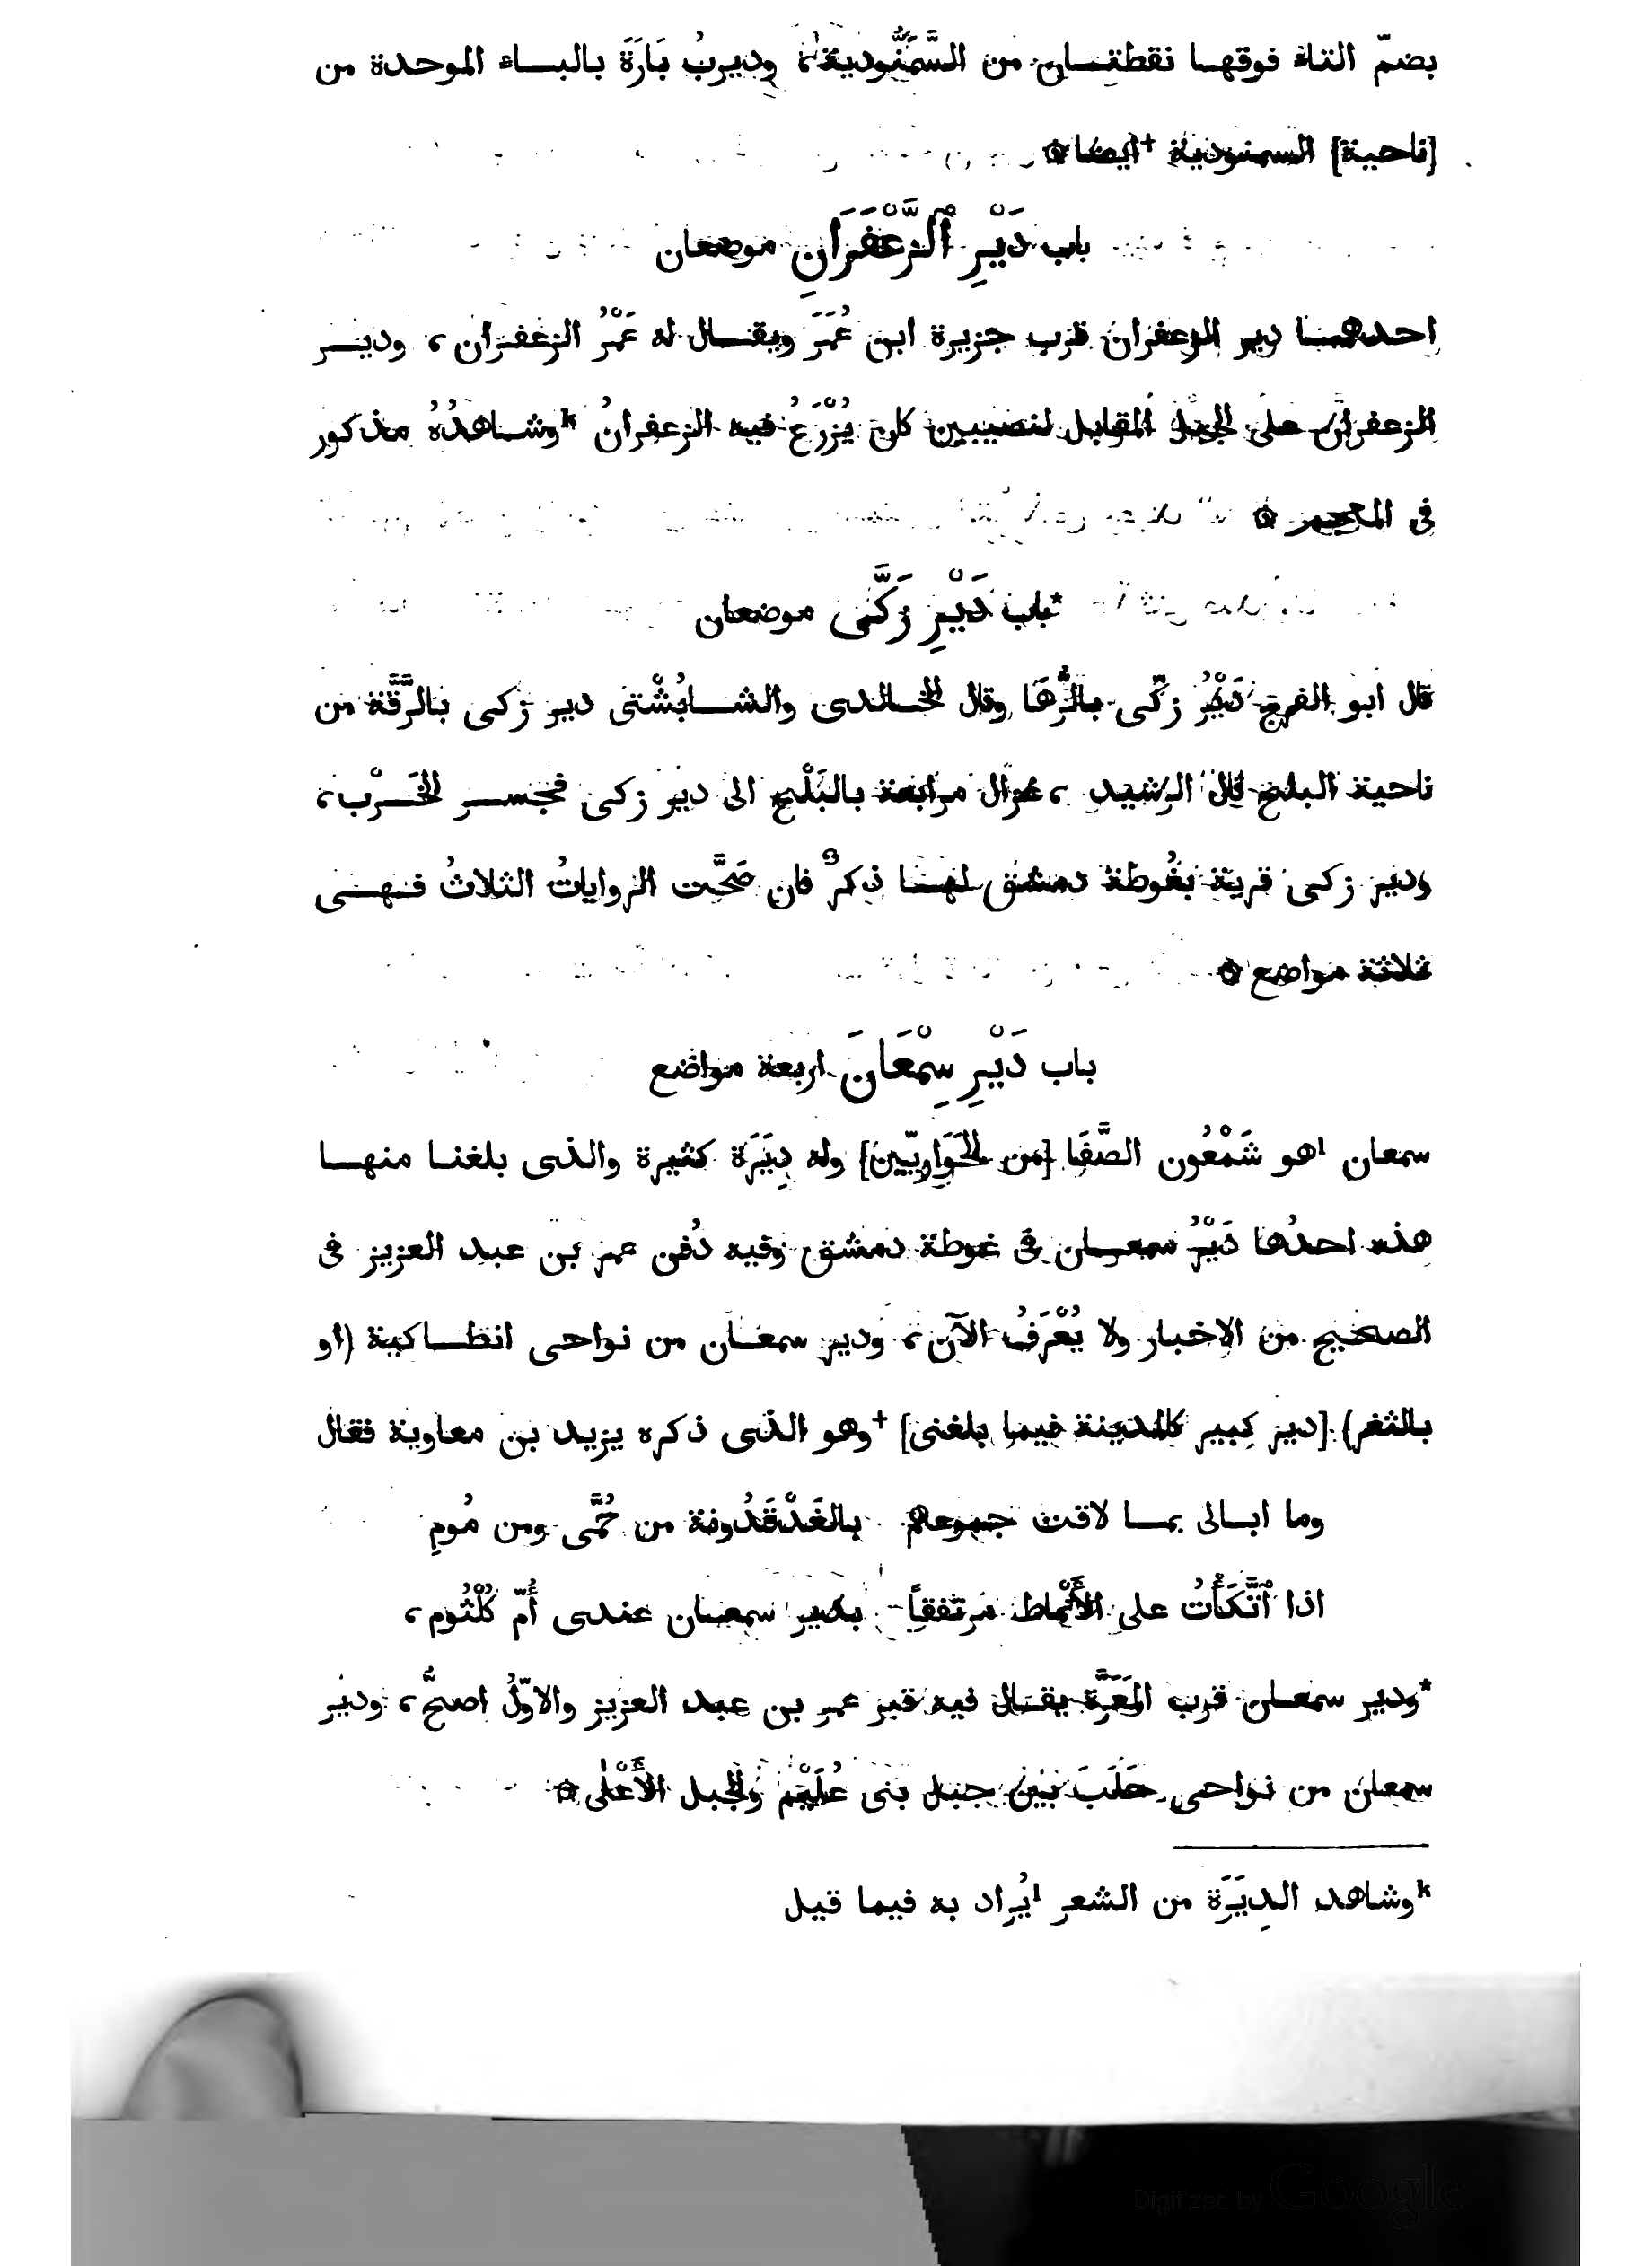 بضمّ التاء فوقها نقطتان من السَّمَنُّودية، وديربُ بَارَةَ بالباء الموحدة من
[ناحية] السمنودية +ايضا ۞
باب دَيْرِ ٱلزَّعْفَرَانِ موضعان
احدهما دير الزعفران قرب جزيرة ابن عُمَرَ ويقال له عَمْرُ الزعفران، ودير
الزعفران على الجبل المقابل لنصيبين كان يُزْرَعُ فيه الزعفرانُ kوشاهدُهُ مذكور
فى المعجم ۞
*باب دَيْرِ زَكَّى موضعان
قال ابو الفرج دَيْرُ زكّى بالرُّهَا وقال الخالدى والشابُشْتى دير زكى بالرَّقَّة من
ناحية البليخ قال الرشيد ، غزال مراتعه بالبَلْيخ الى دير زكى فجسر الخَرْب،
ودير زكى قرية بغُوطة دمشق لها ذكرٌ فان صَحَّت الرواياتُ الثلاثُ فهى
ثلاثة مواضع ۞
باب دَيْرِ سِمْعَانَ اربعة مواضع
سمعان lهو شَمْعُون الصَّفَا [من الحَوَارِيّين] وله دِيَرَة كثيرة والذى بلغنا منها
هذه احدُها دَيْرُ سمعان فى غوطة دمشق وفيه دُفن عمر بن عبد العزيز فى
الصحيح من الاخبار ولا يُعْرَفُ الآن، ودير سمعان من نواحى انطاكية (او
بالثغر) [دير كبير كالمدينة فيما بلغنى] +وهو الذى ذكره يزيد بن معاوية فقال
وما ابالى بما لاقت جموعهم بالغَذْقَذُونة من حُمَّى ومن مُومِ
اذا ٱتَّكَأْتُ على الأَنْماط مرتفقاً بدير سمعان عندى أُمّ كُلْثُوم،
*ودير سمعان قرب المَعَرَّة يقال فيه قبر عمر بن عبد العزيز والاوّلُ اصحُّ، ودير
سمعان من نواحى حَلَبَ بين جبل بنى عُلَيْم والجبل الأَعْلى ۞
kوشاهد الدِيَرَة من الشعر lيُراد به فيما قيل
Digitized by Google